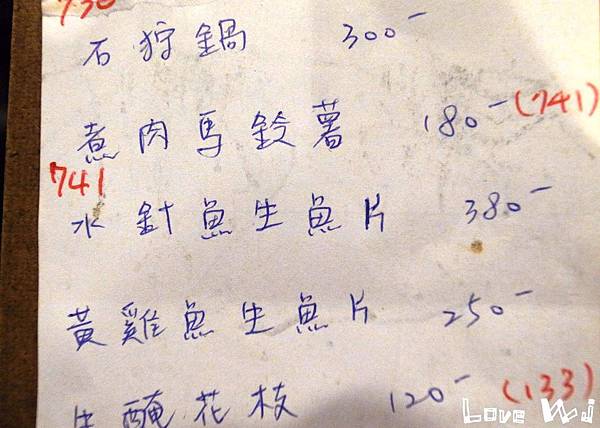 730
石狩鍋 300-
煮肉馬鈴薯 180-(741)
741
水針魚生魚片 380-
黃雞魚生魚片 250-
生醃花枝 120-(133)
Love Wj